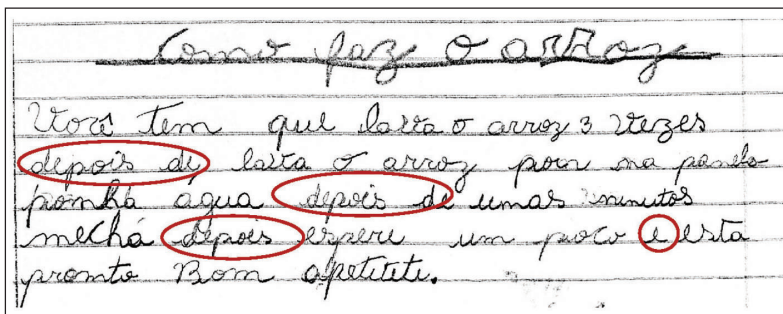 Como faz o arroz
Você tem que lavta o arroz 3 vezes
depois de lavta o arroz poin na panela
ponhá água depois de umas minutos
mechá depois espere um poco e esta
pronto Bom apetiteti.